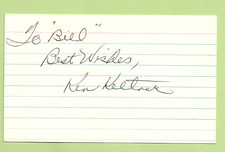 To "Bill"
Best Wishes,
Ken Keltner